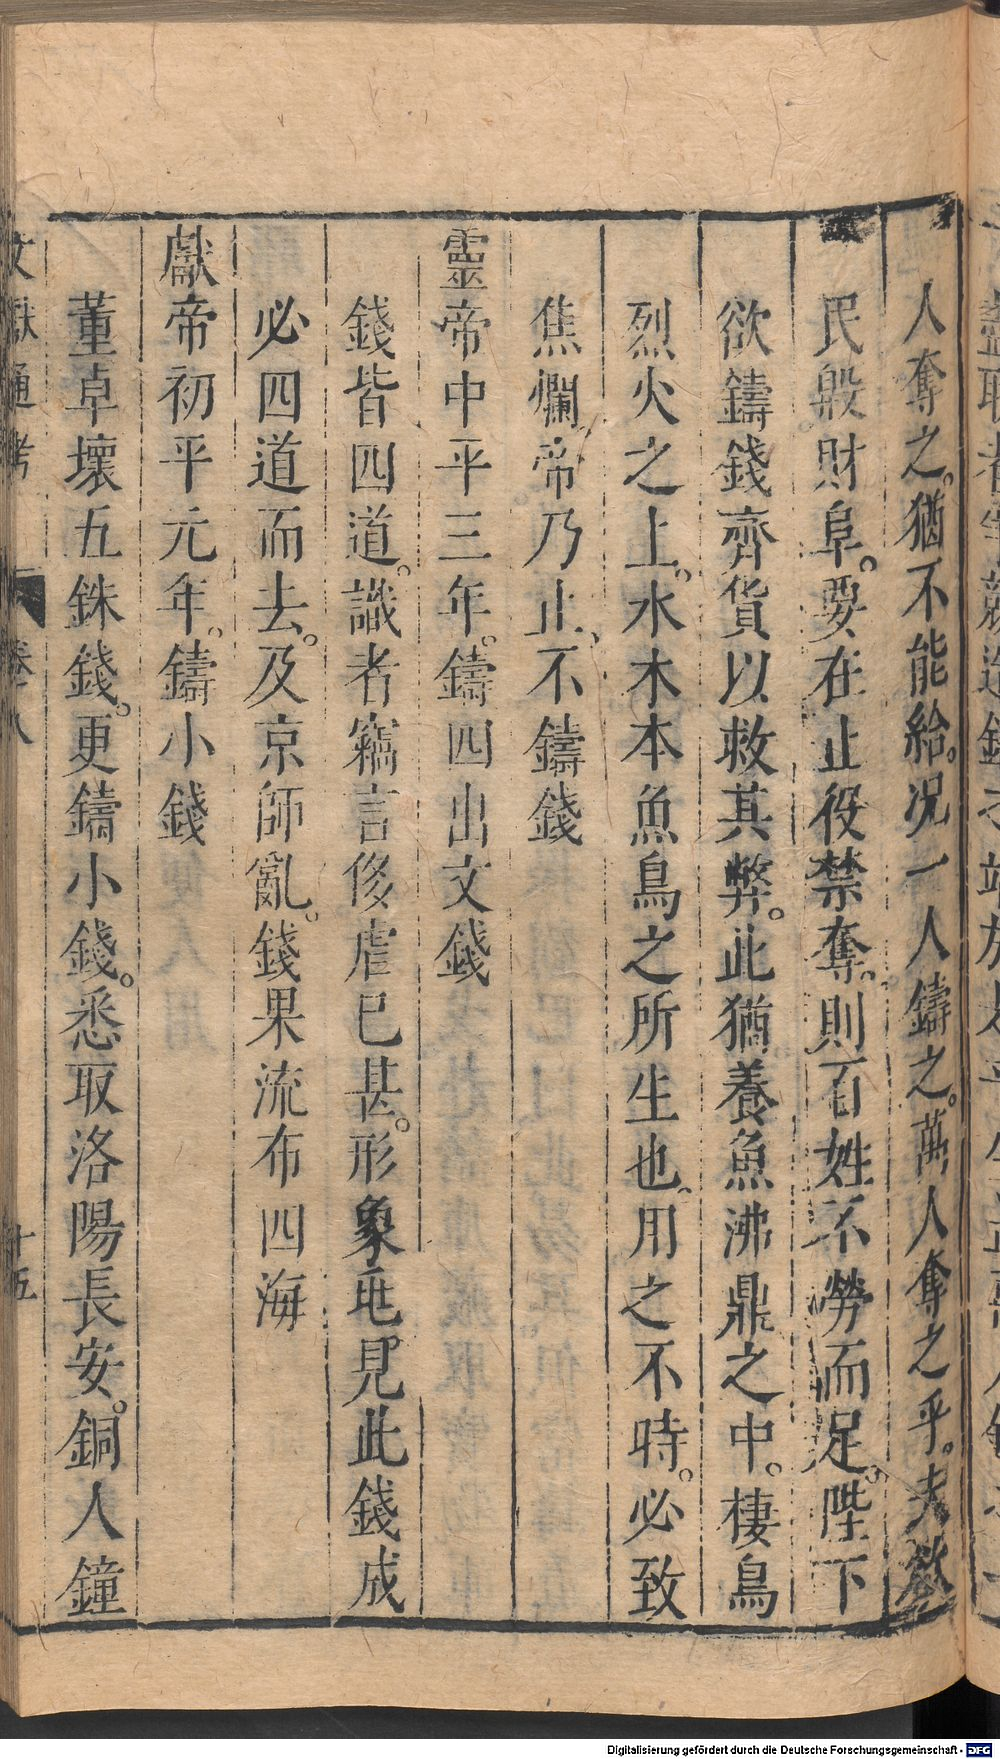 人奪之。猶不能給。況一人鑄之。萬人奪之乎。夫欲
民殷財阜。要在止役禁奪。則百姓不勞而足。陛下
欲鑄錢齊貨以救其弊。此猶養魚沸鼎之中。棲鳥
烈火之上。水木本魚鳥之所生也。用之不時。必致
焦爛帝乃止。不鑄錢
靈帝中平三年。鑄四出文錢
錢皆四道。識者竊言侈虐已甚。形象兆見此錢成
必四道而去。及京師亂。錢果流布四海
獻帝初平元年。鑄小錢
董卓壞五銖錢。更鑄小錢。悉取洛陽長安。銅人鐘
文獻通考 卷八 十五
Digitalisierung gefördert durch die Deutsche Forschungsgemeinschaft - DFG